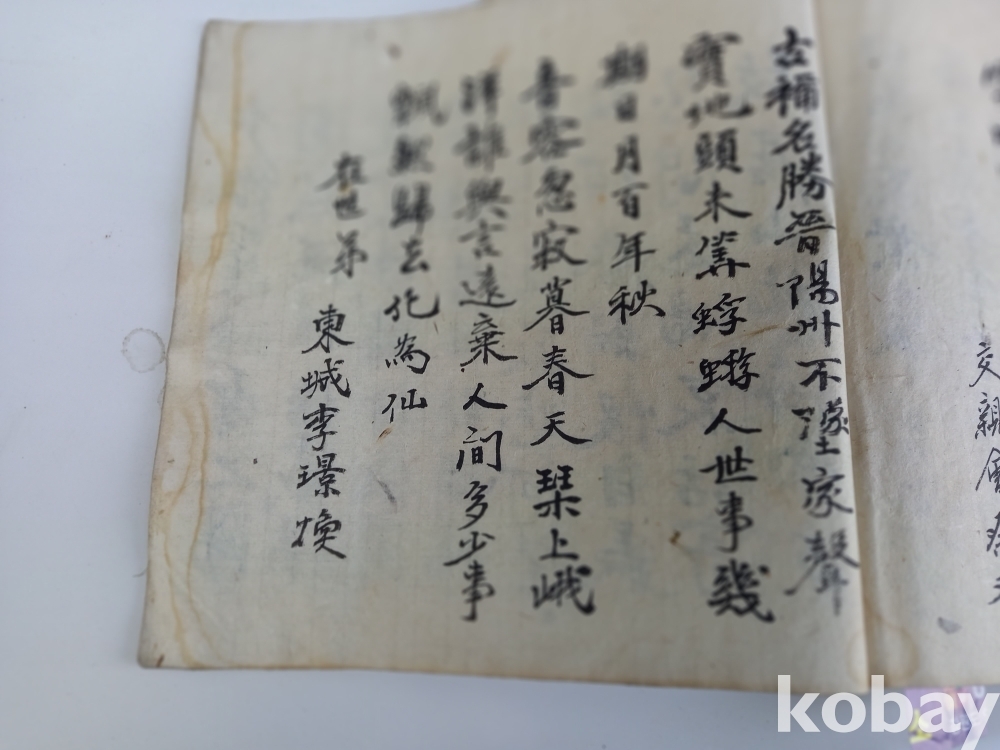 交親會
古稱名勝晋陽州不墜家聲
實地頭未筭蜉蝣人世事幾
日月百年秋
喜容忽寂暮春天琹上峨
洋誰與言遠棄人間多少事
飄然歸去化為仙
在世弟 東城李璟煥
kobay